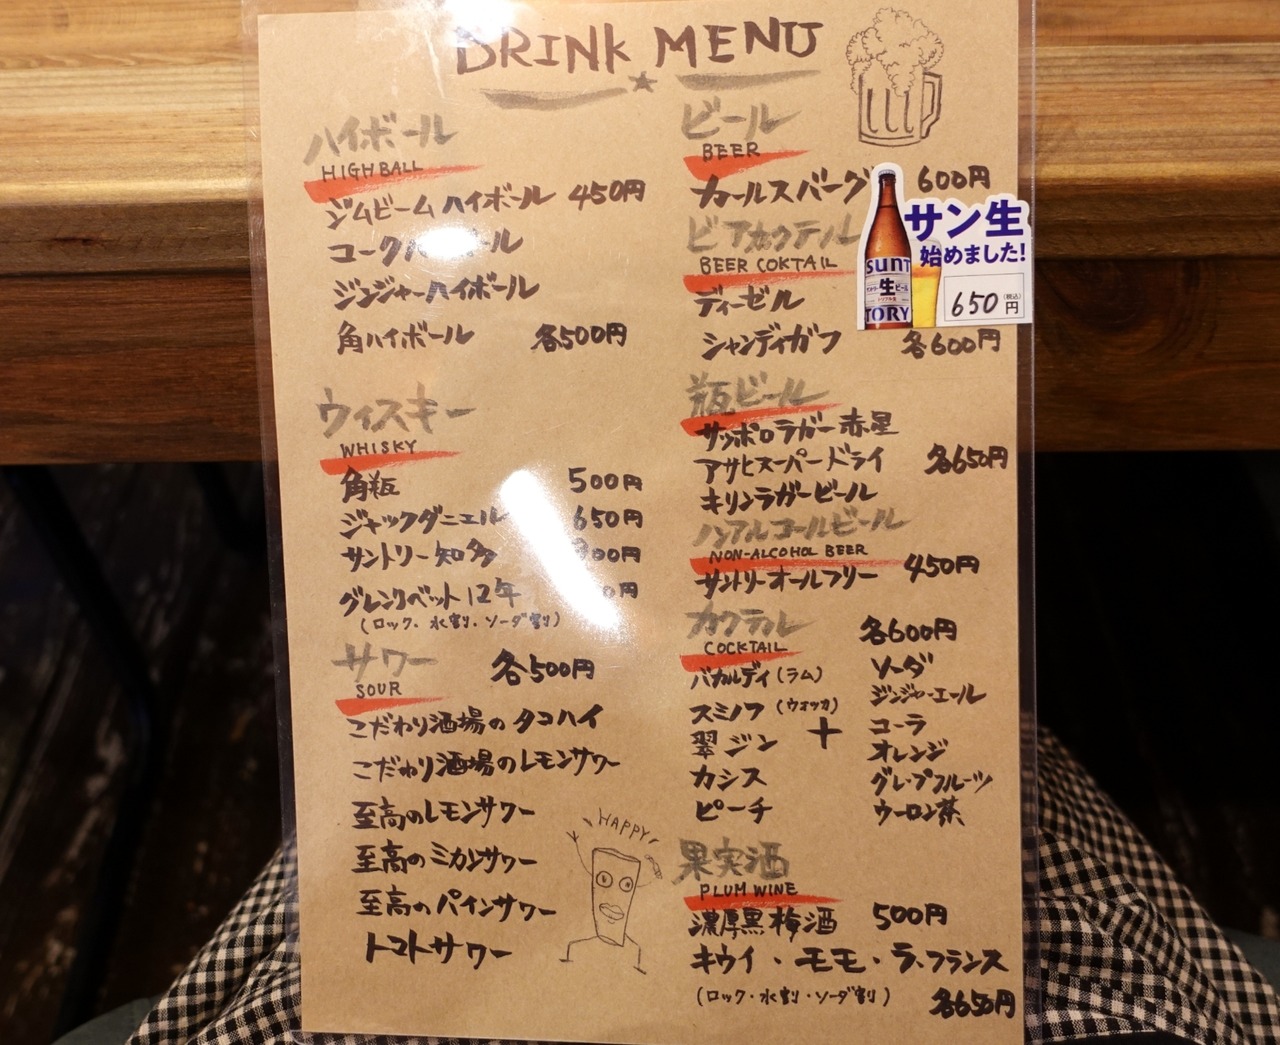 DRINK MENU
ハイボール
HIGHBALL
ジムビームハイボール 450円
コークハイボール
ジンジャーハイボール
角ハイボール 各500円
ウィスキー
WHISKY
角瓶 500円
ジャックダニエル 650円
サントリー知多 00円
グレンリベット12年 0円
(ロック・水割・ソーダ割)
サワー 各500円
SOUR
こだわり酒場のタコハイ
こだわり酒場のレモンサワー
至高のレモンサワー
至高のミカンサワー
至高のパインサワー
トマトサワー
HAPPY
ビール
BEER
カールスバーグ 600円
サン生
始めました!
SUNT
生ビール
TORY
650円(税込)
ビアカクテル
BEER COKTAIL
ディーゼル
シャンディガフ 各600円
瓶ビール
サッポロラガー赤星
アサヒスーパードライ 各650円
キリンラガービール
ノンアルコールビール
NON-ALCOHOL BEER
サントリーオールフリー 450円
カクテル 各600円
COCKTAIL
バカルディ(ラム) ソーダ
スミノフ(ウォッカ) ジンジャーエール
翠ジン + コーラ
オレンジ
カシス グレープフルーツ
ピーチ ウーロン茶
果実酒
PLUM WINE
濃厚黒梅酒 500円
キウイ・モモ・ラ・フランス
(ロック・水割・ソーダ割) 各650円